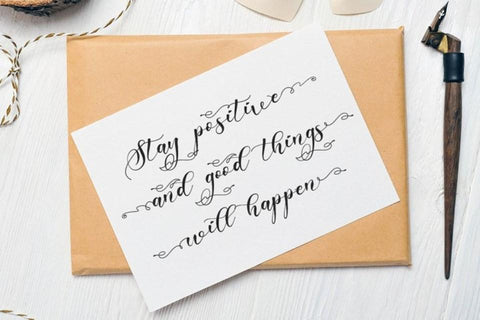 Stay positive
and good things
will happen